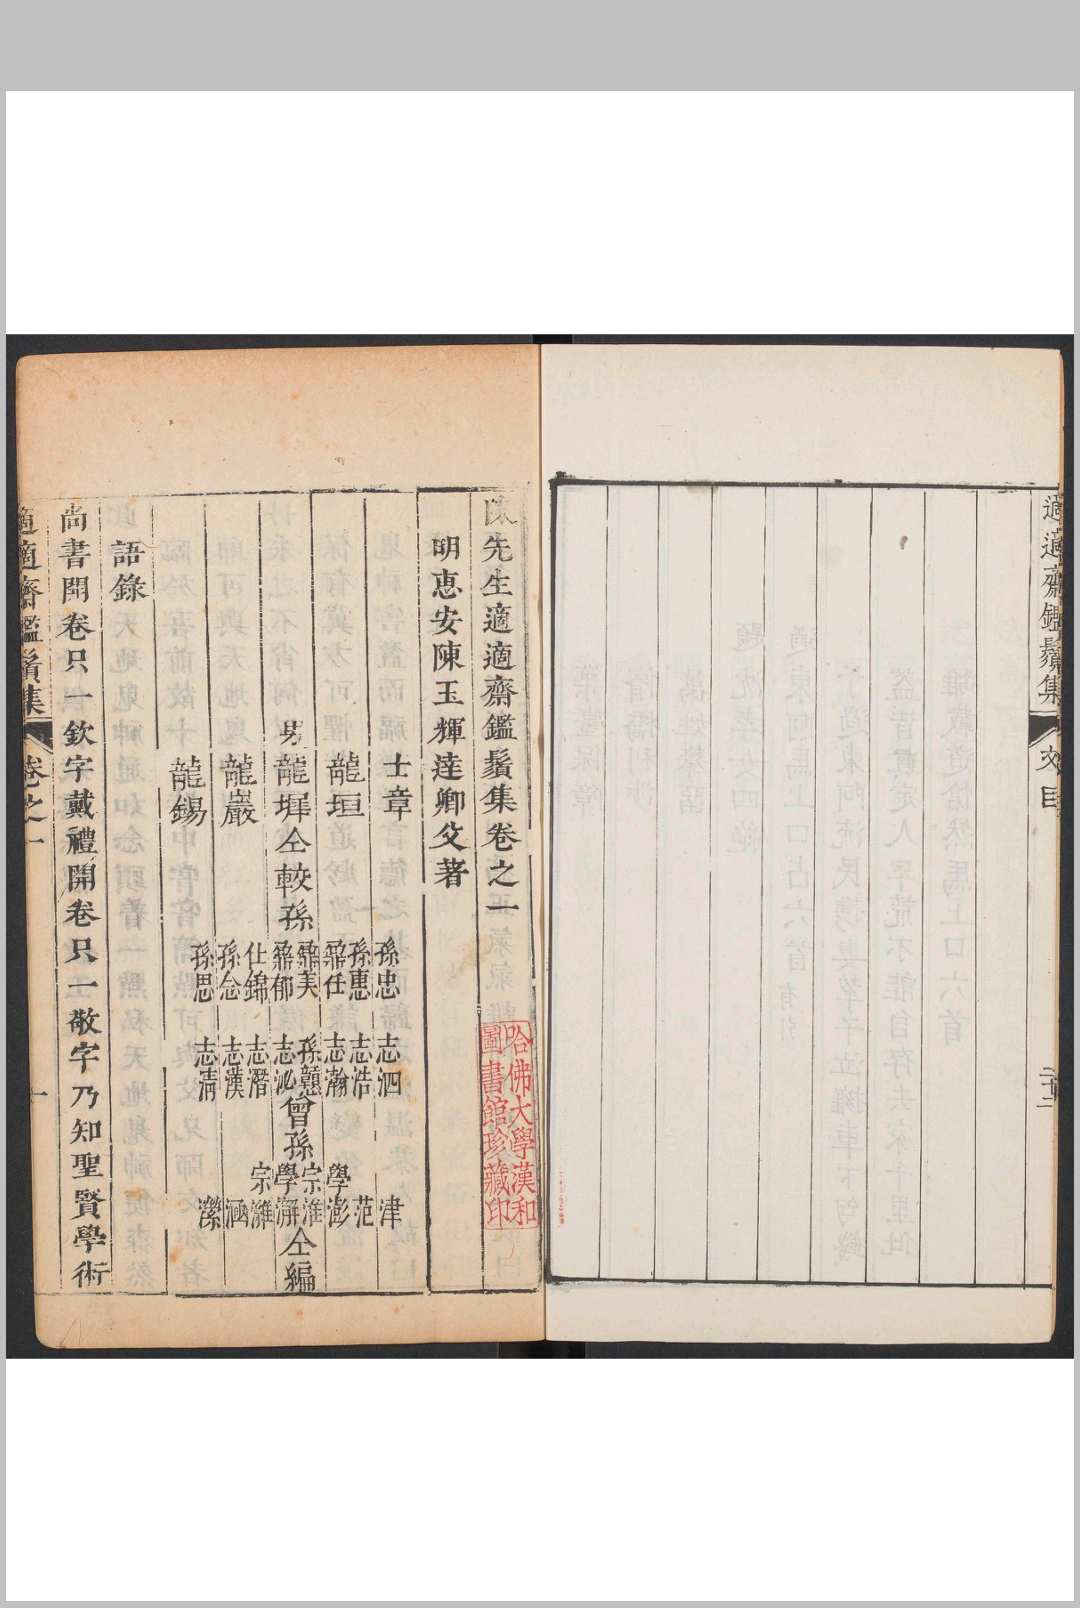 適適齋鑑鬚集
文目
二十二
陳先生適適齋鑑鬚集卷之一
明惠安陳玉輝達卿父著
士章
龍垣
男龍墀仝較
龍巖
龍錫
孫忠
孫惠
鼐任
鼐美
孫鼐郁
仕錦
孫念
孫思
志泗
志浩
志瀚
孫
志泌
志潛
志漢
志清
津
范
學澎
宗淮
曾孫學澥仝編
宗濰
涵
濼
語錄
尚書開卷只一欽字戴禮開卷只一敬字乃知聖賢學術
適適齋鑑鬚集
卷之一
一
哈佛大學漢和
圖書館珍藏印